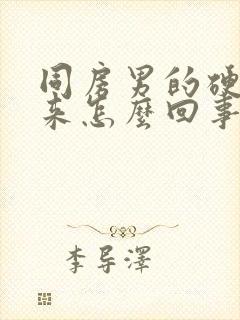 同房男的硬
来怎麼回事
李导澤